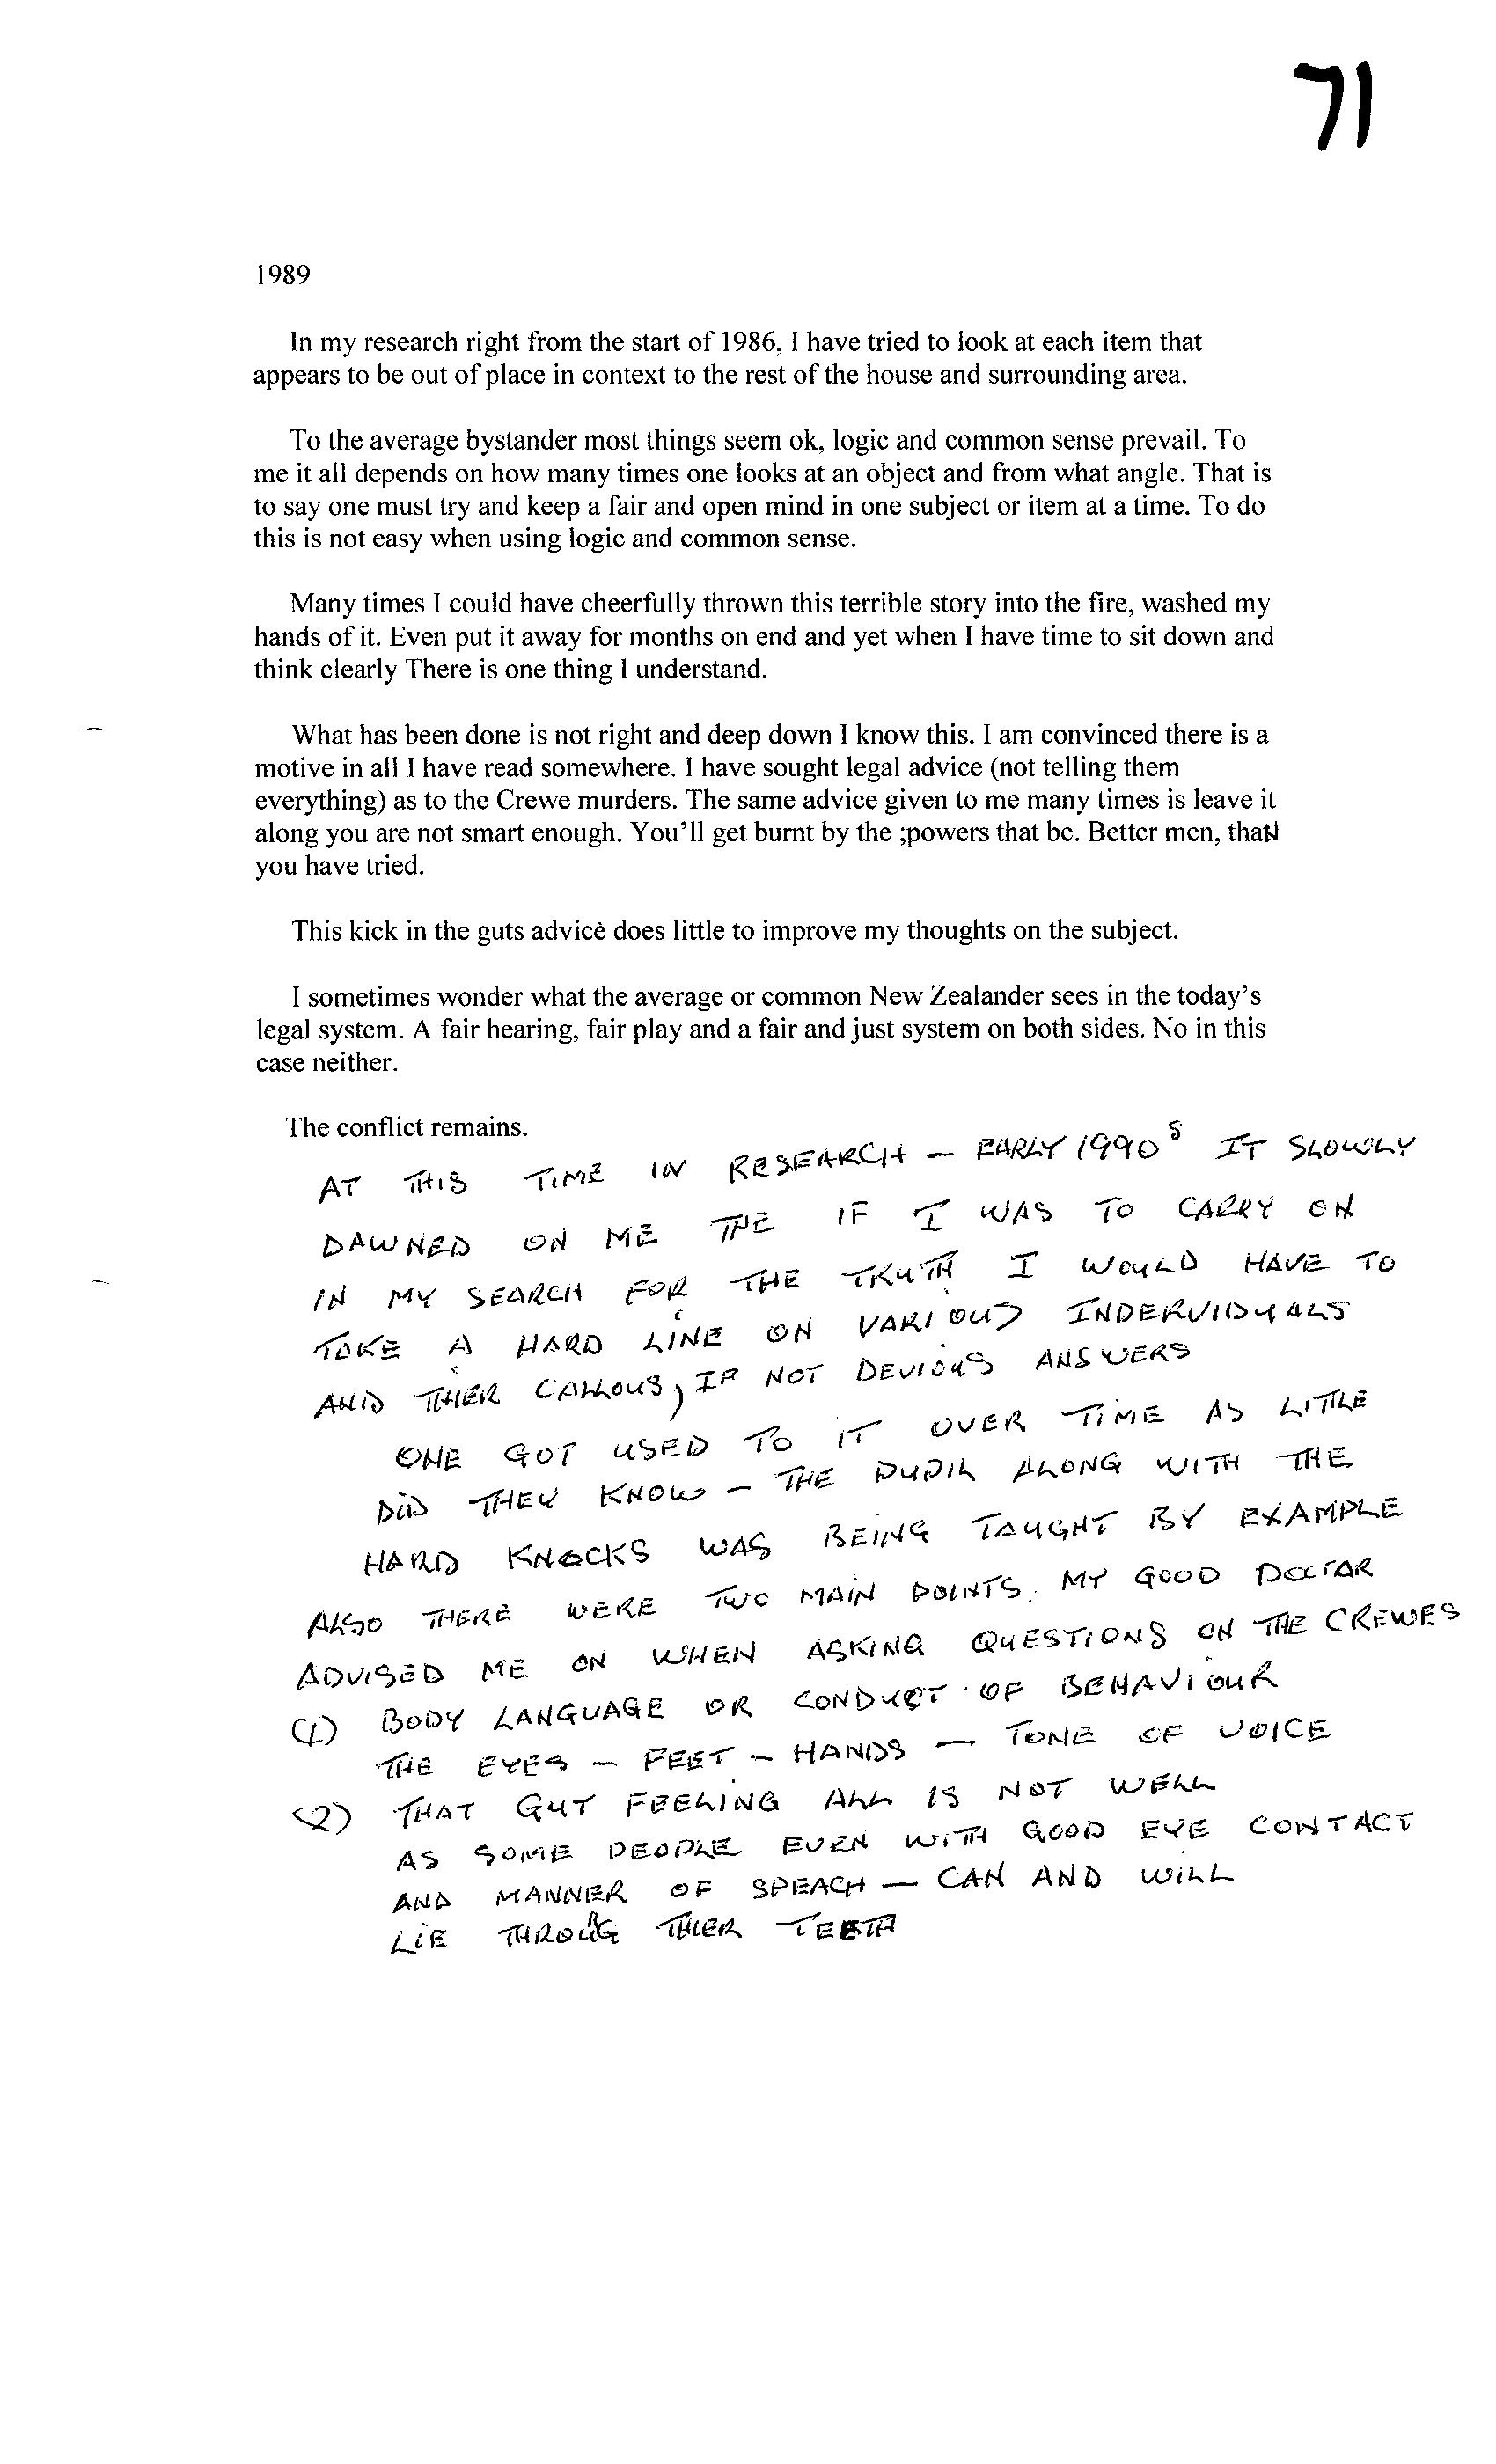 71
1989
In my research right from the start of 1986, I have tried to look at each item that
appears to be out of place in context to the rest of the house and surrounding area.
To the average bystander most things seem ok, logic and common sense prevail. To
me it all depends on how many times one looks at an object and from what angle. That is
to say one must try and keep a fair and open mind in one subject or item at a time. To do
this is not easy when using logic and common sense.
Many times I could have cheerfully thrown this terrible story into the fire, washed my
hands of it. Even put it away for months on end and yet when I have time to sit down and
think clearly There is one thing I understand.
What has been done is not right and deep down I know this. I am convinced there is a
motive in all I have read somewhere. I have sought legal advice (not telling them
everything) as to the Crewe murders. The same advice given to me many times is leave it
along you are not smart enough. You'll get burnt by the ;powers that be. Better men, thaN
you have tried.
This kick in the guts advice does little to improve my thoughts on the subject.
I sometimes wonder what the average or common New Zealander sees in the today's
legal system. A fair hearing, fair play and a fair and just system on both sides. No in this
case neither.
The conflict remains.
AT THIS TIME IN RESEARCH — EARLY 1990s IT SLOWLY
DAWNED ON ME THE IF I WAS TO CARRY ON
IN MY SEARCH FOR THE TRUTH I WOULD HAVE TO
TAKE A HARD LINE ON VARIOUS INDERVIDUALS
AND THER CALLOUS, IF NOT DEVIOUS ANSWERS
ONE GOT USED TO IT OVER TIME AS LITTLE
DID THEY KNOW — THE PUPIL ALONG WITH THE
HARD KNOCKS WAS BEING TAUGHT BY EXAMPLE
ALSO THERE WERE TWO MAIN POINTS. MY GOOD DOCTAR
ADVISED ME ON WHEN ASKING QUESTIONS ON THE CREWES
(1) BODY LANGUAGE OR CONDUCT OF BEHAVIOUR
THE EYES — FEET — HANDS — TONE OF VOICE
(2) THAT GUT FEELING ALL IS NOT WELL
AS SOME PEOPLE EVEN WITH GOOD EYE CONTACT
AND MANNER OF SPEACH — CAN AND WILL
LIE THIER TEETH